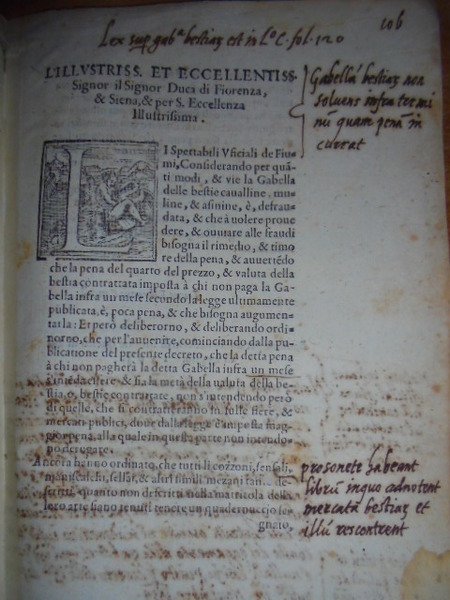 106
Lex sup gab^a bestiaꝝ est in L^o C. fol. 120
L'ILLVSTRISS. ET ECCELLENTISS.
Signor il Signor Duca di Fiorenza,
& Siena, & per S. Eccellenza
Illustrissima.
Gabella bestiaꝝ non
soluens infra termi
nū quam penā in
currat
LI Spettabili Vficiali de Fiu
mi, Considerando per quā
ti modi, & vie la Gabella
delle bestie caualline, mu-
line, & asinine, è, defrau-
data, & che à uolere proue
dere, & ouuiare alle fraudi
bisogna il rimedio, & timo
re della pena, & auuertēdo
che la pena del quarto del prezzo, & valuta della
bestia contrattata imposta à chi non paga la Ga-
bella infra un mese secondo la legge ultimamente
publicata, è, poca pena, & che bisogna augumen-
tarla: Et però deliberorno, & deliberando ordi-
norno, che per l'auuenire, cominciando dalla pu-
blicatione del presente decreto, che la detta pena
à chi non pagherà la detta Gabella infra un mese
s'intēda essere, & sia la metà della ualuta della be-
stia, ò bestie contrattate, non s'intendendo però
di quelle, che si contratteranno in sulle fiere, &
mercati publici, doue dalla legge è imposta mag-
gior pena, alla quale in questa parte non intendo-
no derogare.
Ancora hanno ordinato, che tutti li cozzoni, sensali,
maniscalchi, sellai, & altri simili mezani tan..
descritti, quanto non descritti nella matricola della
loro arte siano tenuti tenere un quadernuccio se-
gnato,
prosonete habeant
librū in quo adnotent
mercata bestiaꝝ et
illū rescontrent